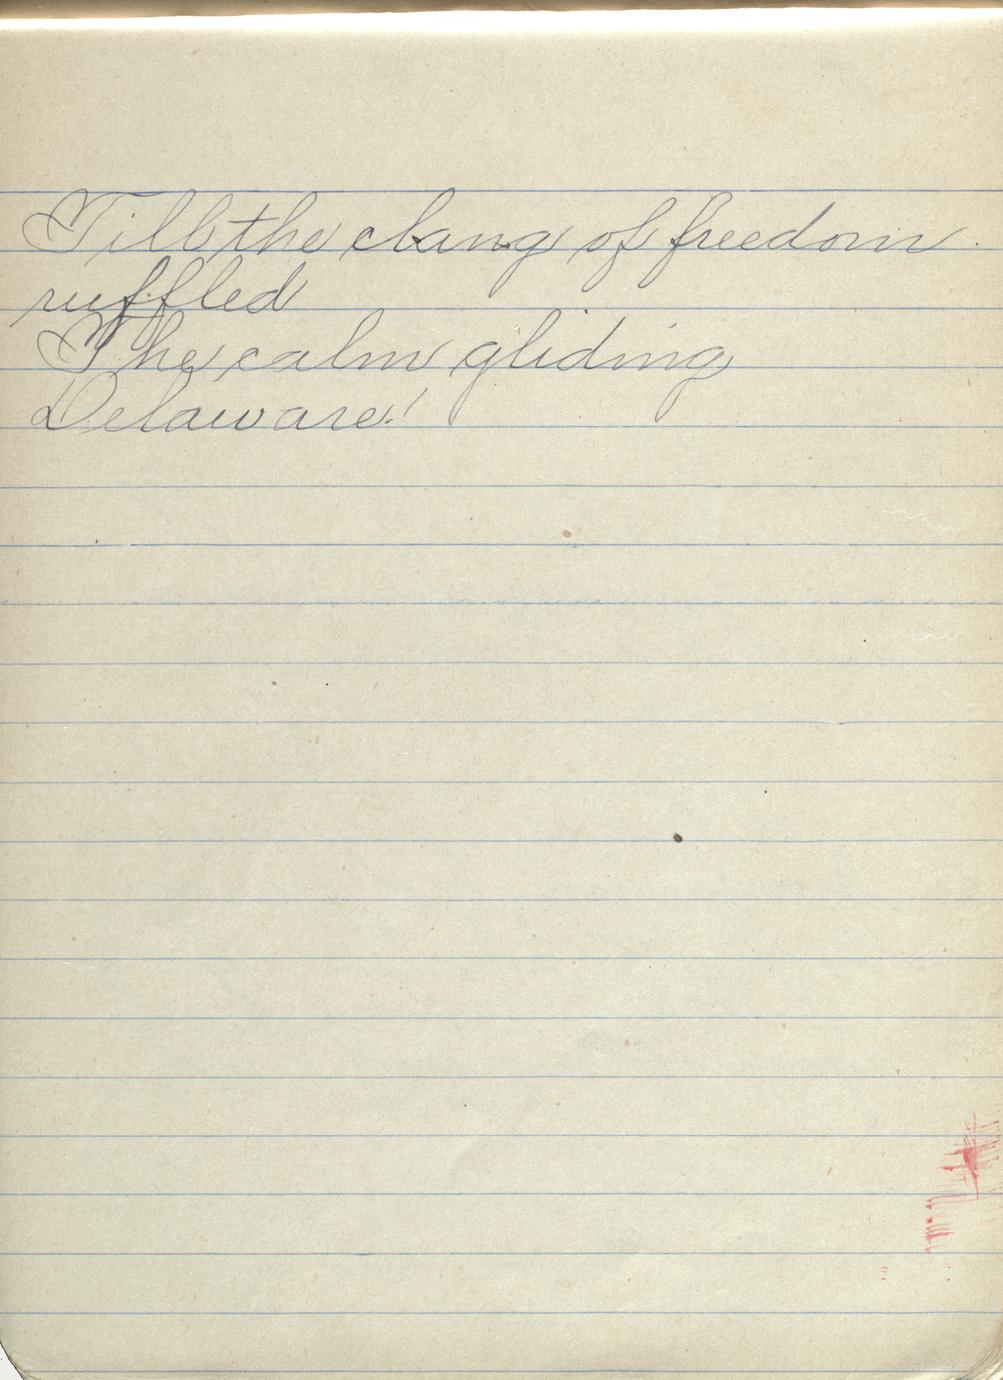 Till the clang of freedom
ruffled
The calm gliding
Delaware!